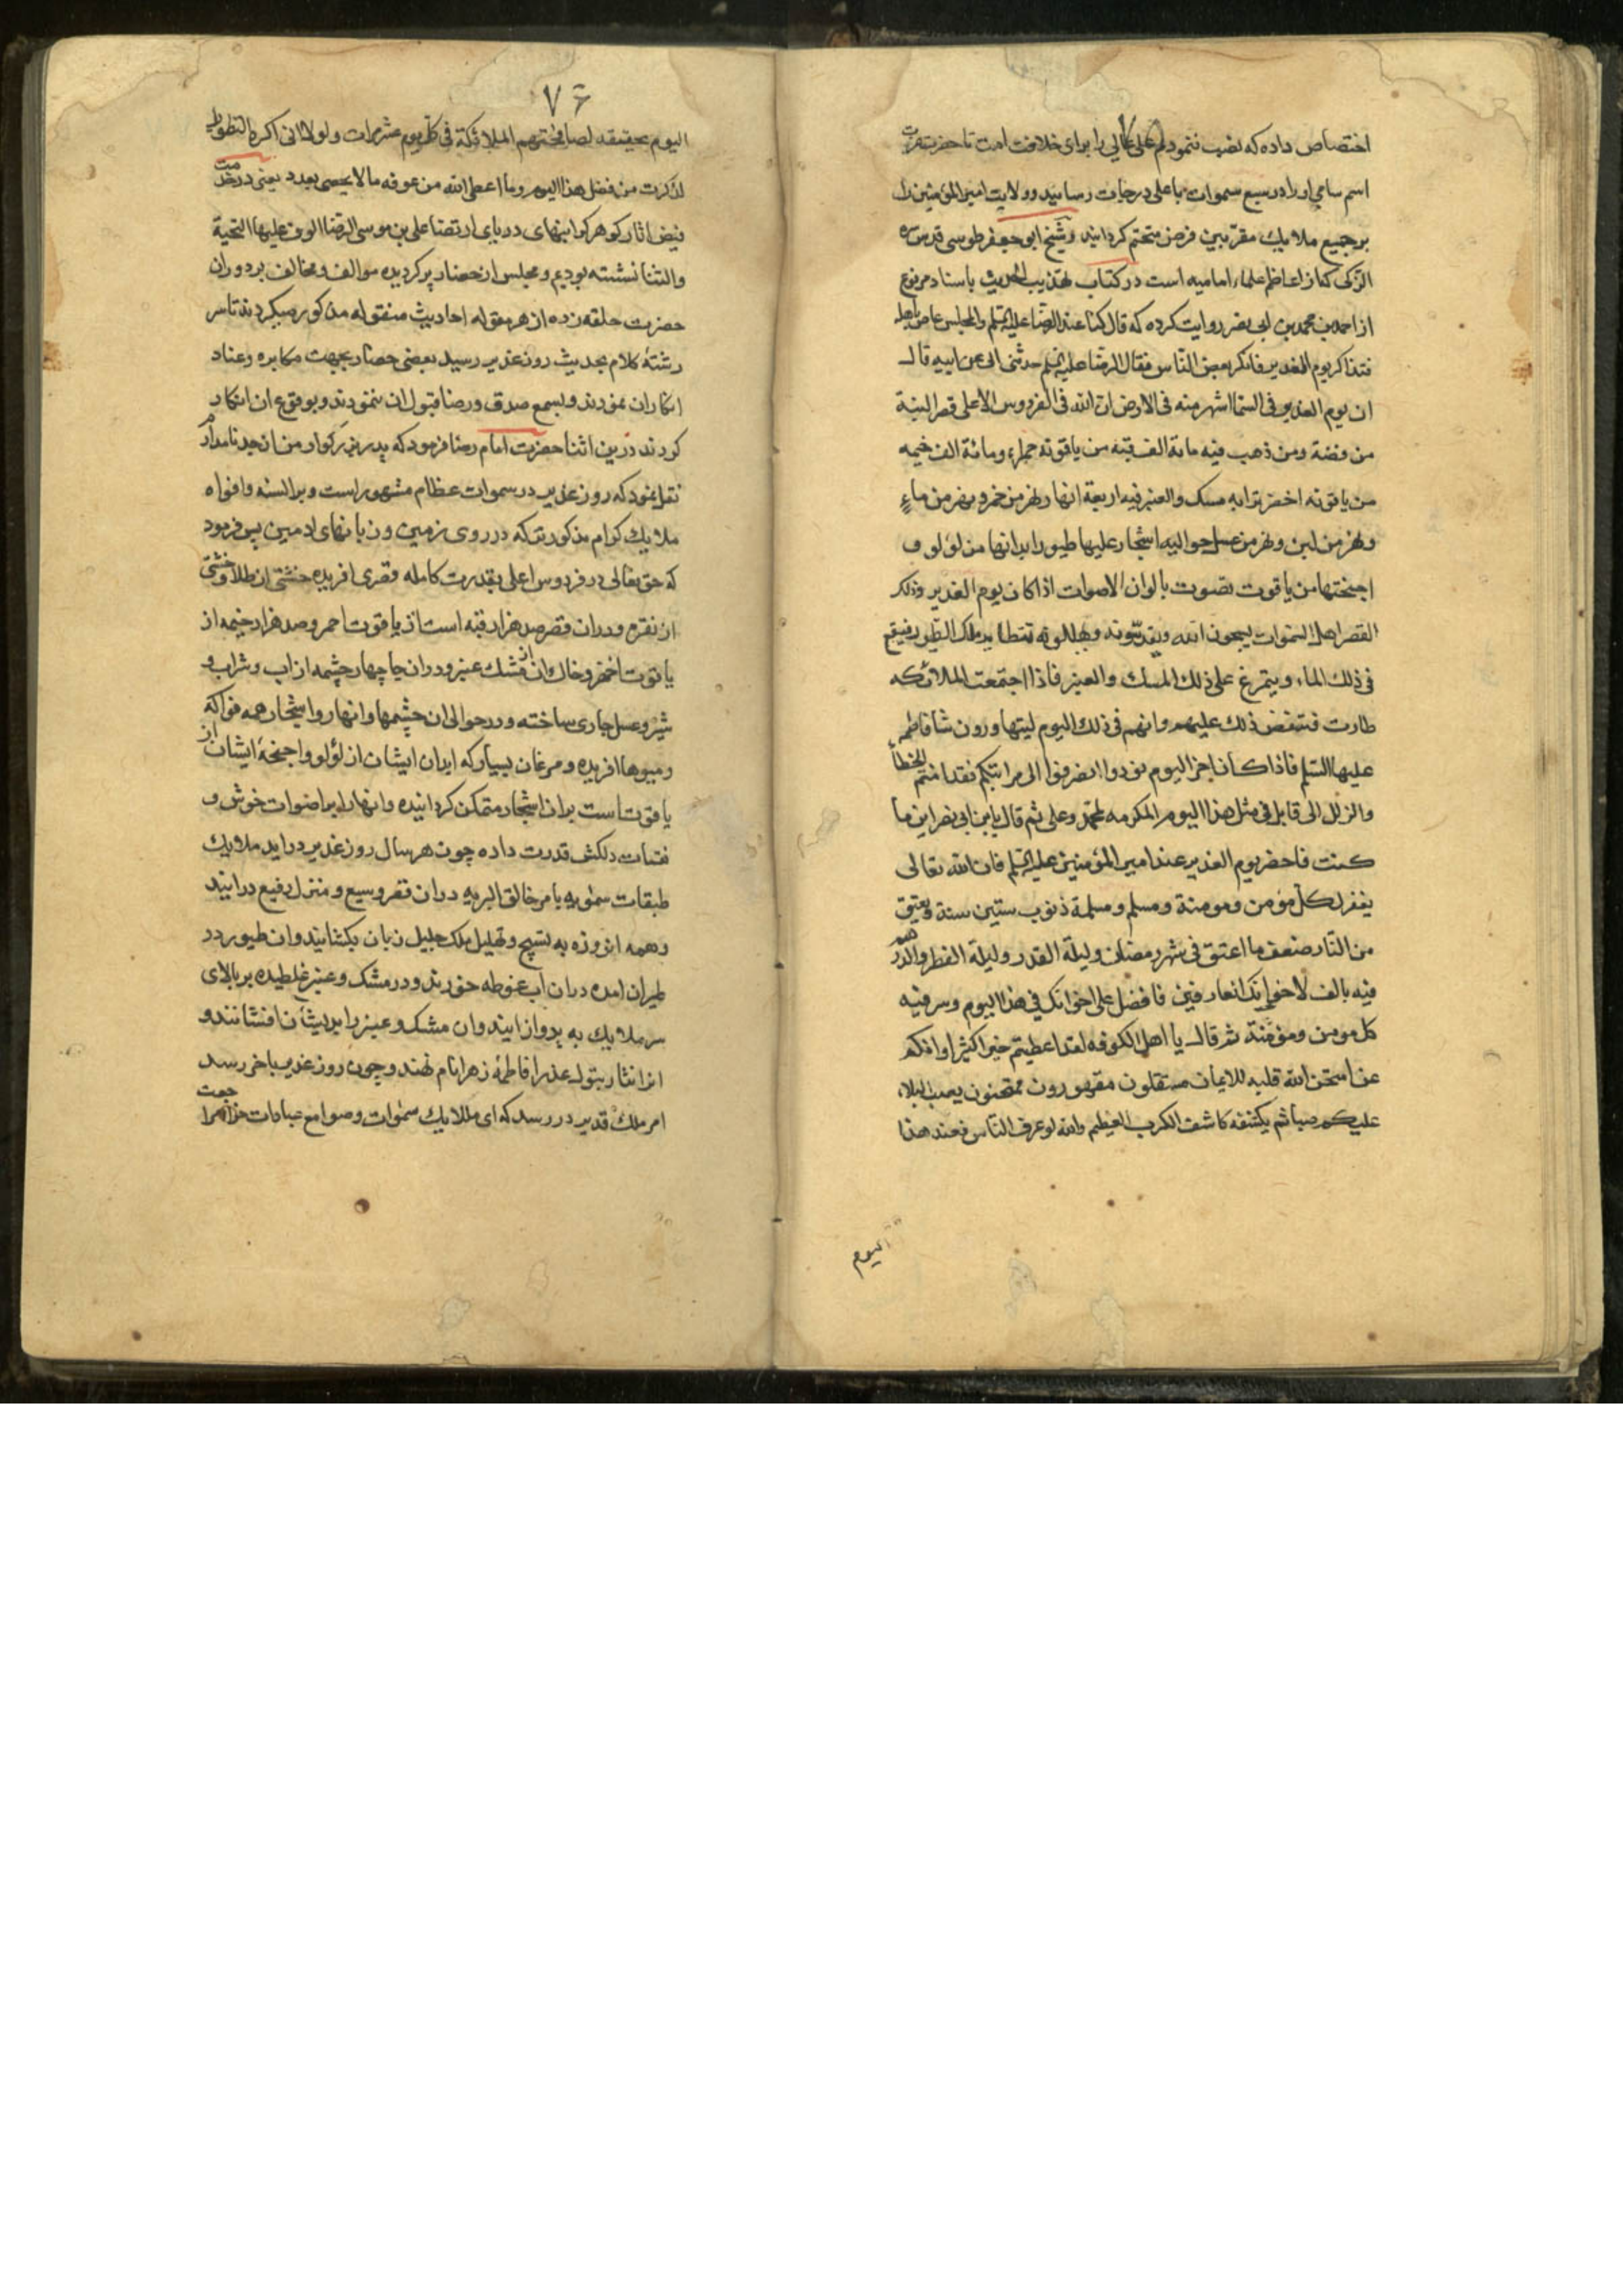 اختصاص داده که نصب ننمودم علی عالی را برای خلافت امت تا حضرت عزت
اسم سامی او را در سبع سموات باعلی درجات رسانید و ولایت امیر المؤمنین را
بر جمیع ملایک مقربین فرض متحتم کردانید و شیخ ابو جعفر طوسی قدس سره
الزکی که از اعاظم علماء امامیه است در کتاب تهذیب الحدیث باسناد مرفوع
از احمد بن محمد بن ابی نصر روایت کرده که قال کنا عند الرضا علیه السلم والمجلس غاص باهله
فتذاکر یوم الغدیر فانکر بعض الناس فقال الرضا علیه السلم حدثنی ابی عن ابیه قال
ان یوم الغدیر فی السما اشهر منه فی الارض ان الله فی الفردوس الاعلی قصر البنة
من فضة ومن ذهب فیه مایة الف قبة من یاقوته حمراء ومائة الف خیمه
من یاقوته اخضر ترابه مسک والعنبر فیه اربعة انهار نهر من خمر ونهر من ماء
ونهر من لبن ونهر من عسل حوالیه اشجار علیها طیور ابدانها من لؤلؤ و
اجنحتها من یاقوت تصوت بالوان الاصوات اذا کان یوم الغدیر وذلک
القصر اهل السموات یسبحون الله ویقدسونه ویهللونه تتطایر ملک الطیور فیقع
فی ذلک الماء ویتمرغ علی ذلک المسک والعنبر فاذا اجتمعت الملائکه
طارت فتنفض ذلک علیهم وانهم فی ذلک الیوم لیتهاورون نثار فاطمه
علیها السلم فاذا کان اخر الیوم نودوا انصرفوا الی مراتبکم فقد امنتم الخطا
والزلل الی قابل فی مثل هذا الیوم المکرمه لمحمد وعلی ثم قال یا بن ابی نصر این ما
کنت فاحضر یوم الغدیر عند امیر المؤمنین علیه السلم فان الله تعالی
یغفر لکل مؤمن ومومنة ومسلم ومسلمة ذنوب ستین سنة ویعتق
من النار ضعف ما اعتق فی شهر رمضان ولیلة القدر ولیلة الفطر والدرهم
فیه بالف لاخوانک العارفین فافضل علی اخوانک فی هذا الیوم وسر فیه
کل مومن ومؤمنة ثم قال یا اهل الکوفه لقد اعطیتم خیرا کثیرا وانکم
عن امتحن الله قلبه للایمان مستقلون مقهورون ممتحنون یصب البلاء
علیکم صبا ثم یکشفه کاشف الکرب العظیم والله لو عرف الناس فعند هذا
الیوم
۷۶
الیوم بحقیقه لصافحتهم الملائکة فی کل یوم عشر مرات ولولا انی اکره التطویل
لذکرت من فضل هذا الیوم وما اعطی الله من عرفه ما لا یحصی بعدد یعنی در خدمت
فیض اثار کوهر کرانبهای دریای ارتضا علی بن موسی الرضا الوف علیها التحیة
والثنا نشسته بودیم و مجلس از حضار پر کردیده موالف و مخالف بر دوران
حضرت حلقه زده از هر مقوله احادیث منقوله مذکور میکردند تا سر
رشتهٔ کلام بحدیث روز غدیر رسید بعضی حضار بجهت مکابره و عناد
انکار ان نمودند و بسمع صدق و رضا قبول ان ننمودند و بوقوع ان انکار
کردند درین اثنا حضرت امام رضا فرمود که پدر بزرکوار من از جد نامدارم
نقل نمود که روز غدیر در سموات عظام مشهور است و بر السنه و افواه
ملایک کرام مذکورتر که در روی زمین و زبانهای ادمین پس فرمود
که حق تعالی در فردوس اعلی بقدرت کامله قصری افریده خشتی از طلا و خشتی
از نقره و در ان قصر صد هزار قبه است از یاقوت احمر و صد هزار خیمه از
یاقوت اخضر و خاک ان از مشک عنبر و در ان جا چهار چشمه از اب و شراب و
شیر و عسل جاری ساخته و در حوالی ان چشمها و انهار و اشجار همه فواکه
و میوها افریده و مرغان بسیار که ابدان ایشان از لؤلؤ و اجنحهٔ ایشان از
یاقوت است بران اشجار متمکن کردانیده و انها را بر اصوات خوش و
نغمات دلکش قدرت داده چون هر سال روز غدیر در اید ملایک
طبقات سموٰیه بامر خالق البریه در ان قصر وسیع و منزل رفیع در ایند
و همه انروزه به تسبیح و تهلیل ملک جلیل زبان بکشایند و ان طیور در
طیران امده در ان اب غوطه خورند و در مشک و عنبر غلطیده بر بالای
سر ملایک به پرواز ایند و ان مشک و عنبر را بریشان افشانند و
انرا نثار بتول عذرا فاطمهٔ زهرا نام نهند و چون روز غدیر باخر رسد
امر ملک قدیر در رسد که ای ملایک سموٰات و صوامع عبادات خود مراجعت